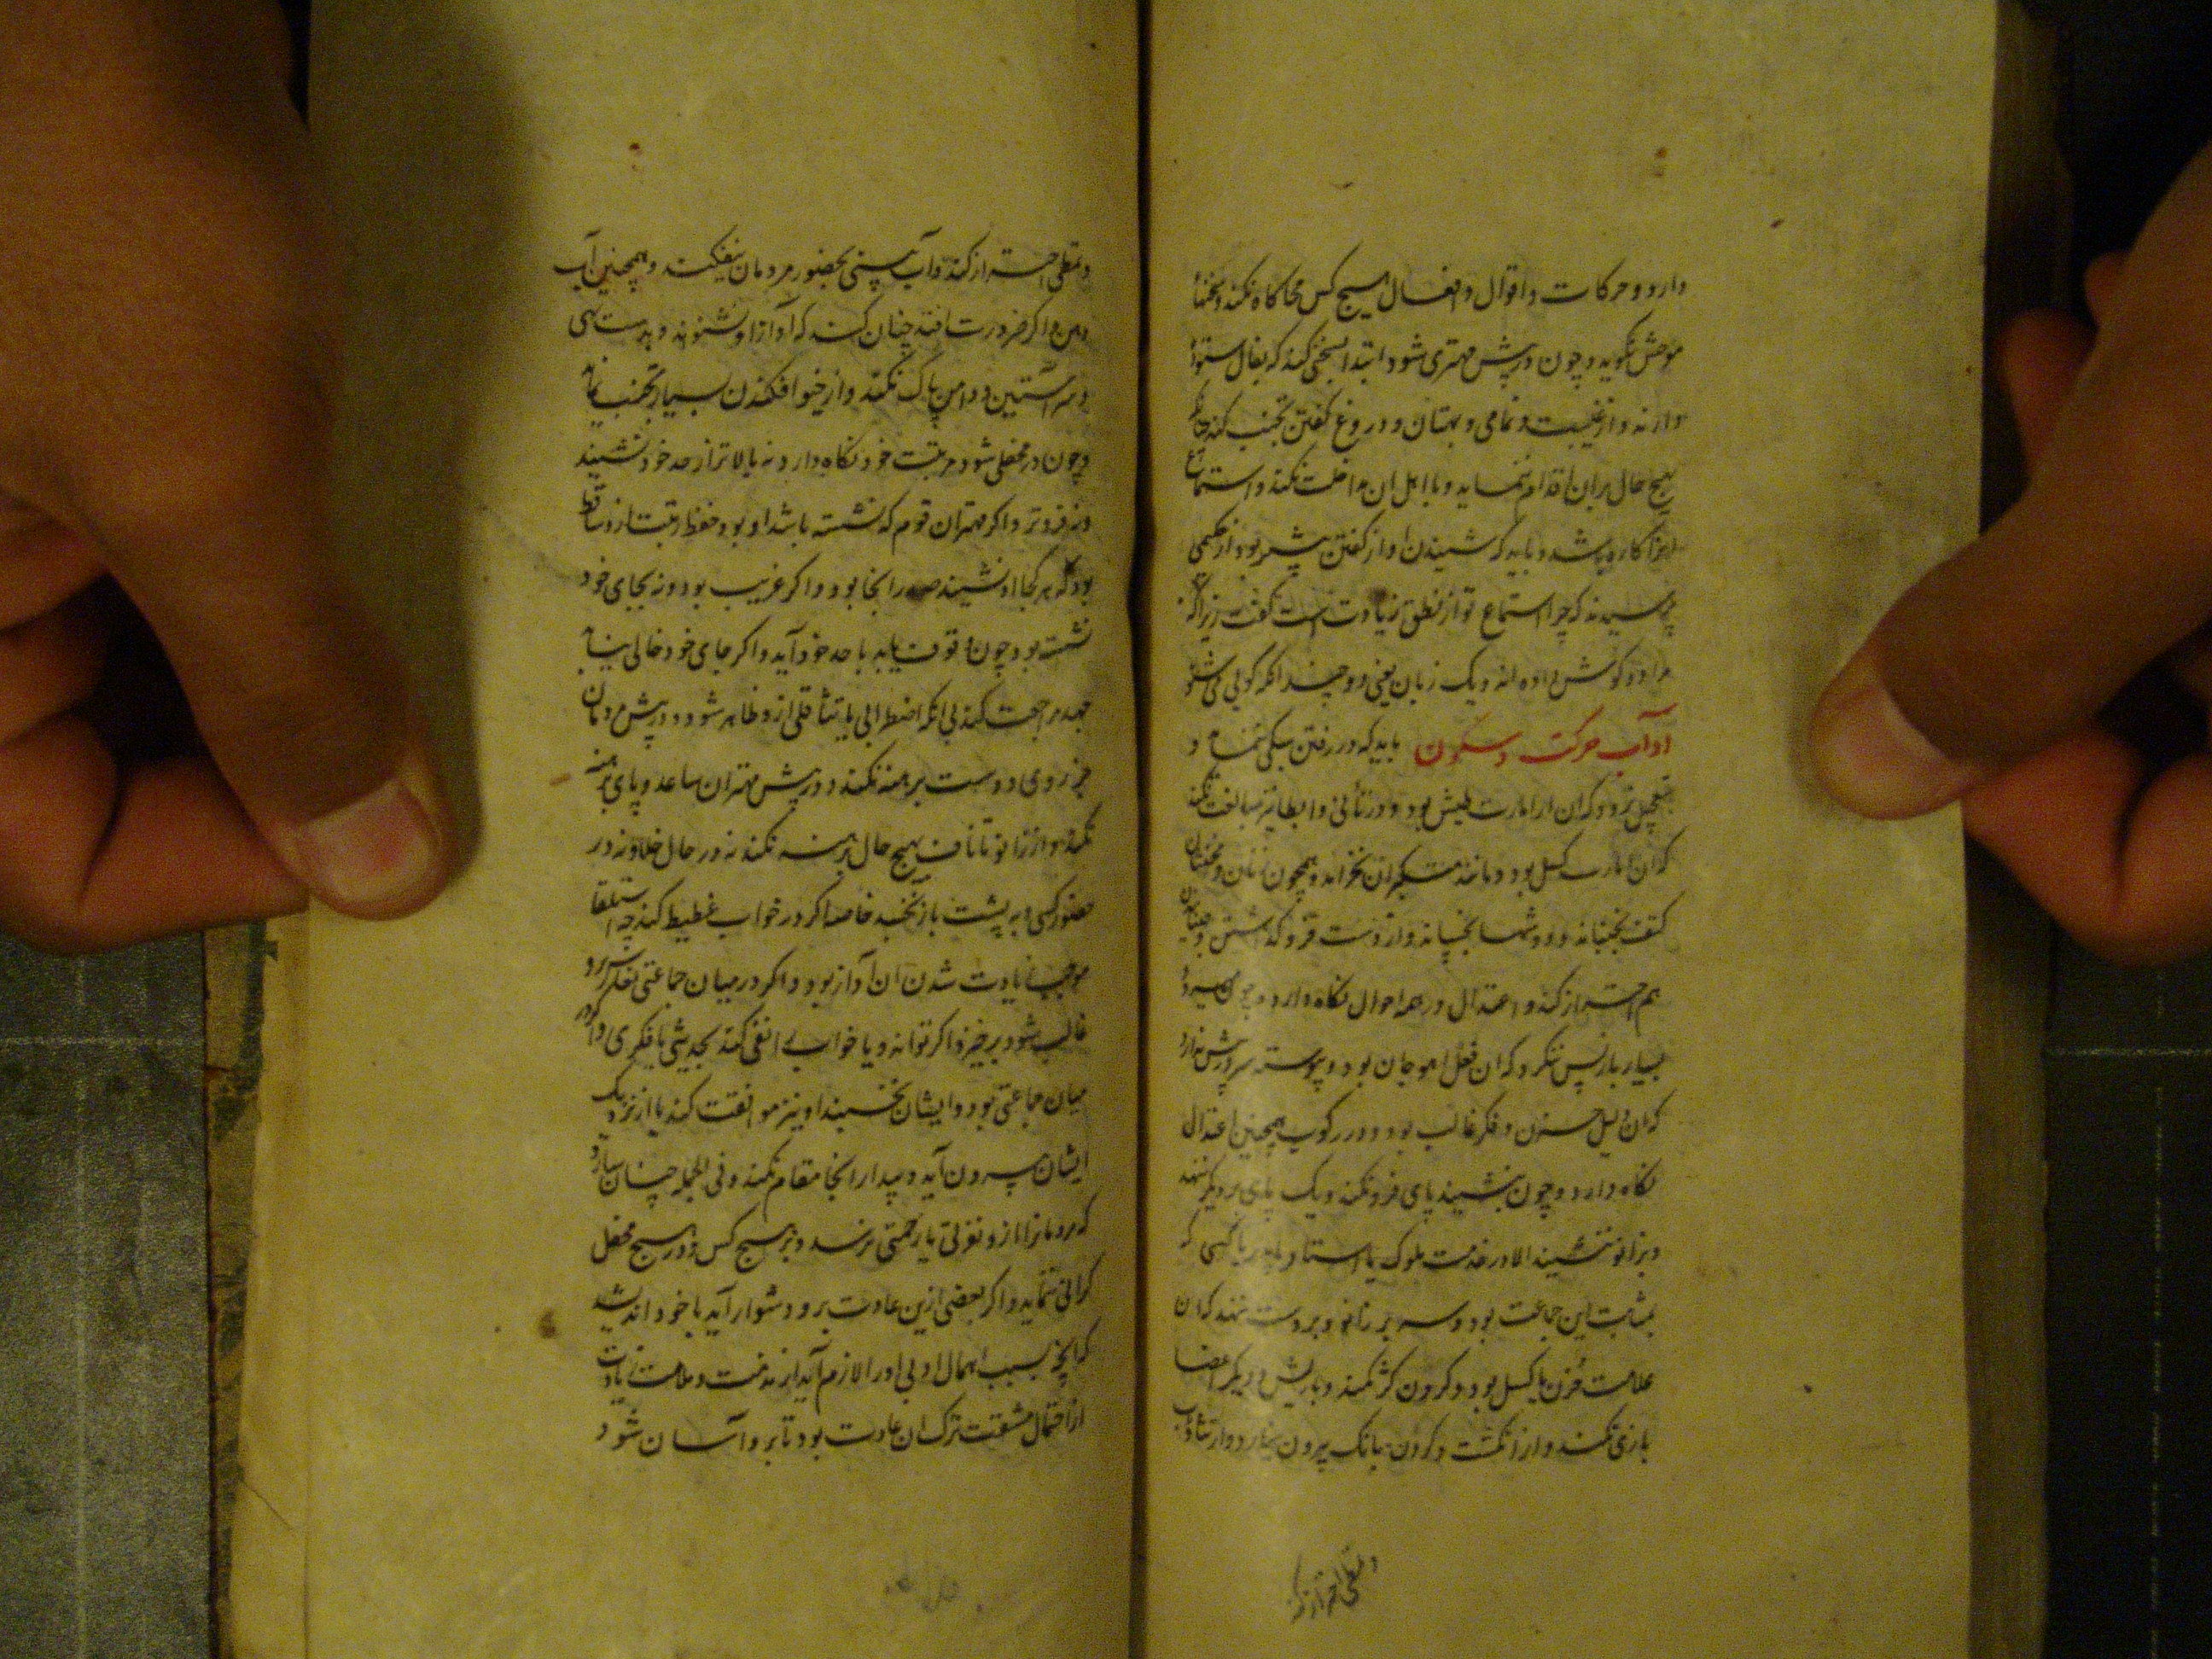 دارد و حرکات و اقوال و افعال هیچ کس محاکاه نکند و سخنهاء
موحش نگوید و چون در پیش مهتری شود ابتدا بسخنی کند که بفال ستوده
دارند و از غیبت و نمامی و بهتان و دروغ گفتن تجنب کند چنانکه
بهیچ حال بران اقدام ننماید و با اهل ان مداخلت نکند و استماع
انرا کاره باشد و باید که شنیدن او از گفتن بیشتر بود از حکیمی
پرسیدند که چرا استماع تو از نطق زیادت است گفت زیرا که
مرا دو گوش داده اند و یک زبان یعنی دو چندانکه گویی می شنو
اداب حرکت و سکون باید که در رفتن سبکی ننماید و
بتعجیل نرود که ان از امارت طیش بود و در تأنی و ابطا نیز مبالغت نکند
که ان امارت کسل بود و مانند متکبران نخرامد و همچون زنان و مخنثان
کتف نجنباند و دوشها نجنباند و از دست فرو گذاشتن و جنبانیدن
هم احتراز کند و اعتدال در همه احوال نگاه دارد و چون می رود
بسیار باز پس ننگرد که ان فعل اهوجان بود و پیوسته سر در پیش ندارد
که ان دلیل حزن و فکر غالب بود و در رکوب همچنین اعتدال
نگاه دارد و چون بنشیند پای فرو نکند و یک پای بر دیگر ننهد
و بزانو ننشیند الا در خدمت ملوک یا استاد یا پدر یا کسی که
بمثابت این جماعت بود و سر بر زانو و بر دست ننهد که ان
علامت حزن یا کسل بود و گردن کژ نکند و با ریش و دیگر اعضا
بازی نکند و از انگشت و گردن بانک بیرون نیارد و از تثاوب
و تمطی احتراز کند
و تمطی احتراز کند و آب بینی بحضور مردمان نیفکند و همچنین آب
دهن و اگر ضرورت افتد چنان کند که آواز او نشنوند و بدست تهی
و سر آستین و دامن پاک نکند و از خیو افکندن بسیار تجنب نماید
و چون در محفلی شود مرتبت خود نگاه دارد نه بالاتر از حد خود نشیند
و نه فروتر و اگر مهتران قوم که نشسته باشد او بود حفظ رتبت از و ساقط
بود که هر کجا او نشیند صدر انجا بود و اگر غریب بود و نه بجای خود
نشست بود چون وقوف یابد با حد خود آید و اگر جای خود خالی نیابد
جهد مراجعت کند بی انکه اضطرابی یا تثاقلی از و ظاهر شود و در پیش مردمان
جز روی و دست برهنه نکند و در پیش مهتران ساعد و پای برهنه
نکند و از زانو تا ناف بهیچ حال برهنه نکند نه در حال خلا و نه در
حضور کسی و به پشت باز نخسبد خاصه اگر در خواب غطیط کند چه استلقا
موجب زیادت شدن ان آواز بود و اگر در میان جماعتی نعاس برو
غالب شود برخیزد اگر تواند و یا خواب را نفی کند بحدیثی یا فکری و اگر در
میان جماعتی بود و ایشان بخسبند او نیز موافقت کند یا از نزدیک
ایشان بیرون آید و بیدار انجا مقام نکند و فی الجمله چنان سازد
که مردمانرا از و نفرتی یا زحمتی نرسد و بر هیچ کس و در هیچ محفل
گرانی ننماید و اگر بعضی ازین عادت برو دشوار آید با خود اندیشد
که انچه بسبب اهمال ادبی او را لازم آید از مذمت و ملامت زیادت
از احتمال مشقت ترک ان عادت بود تا برو آسان شود